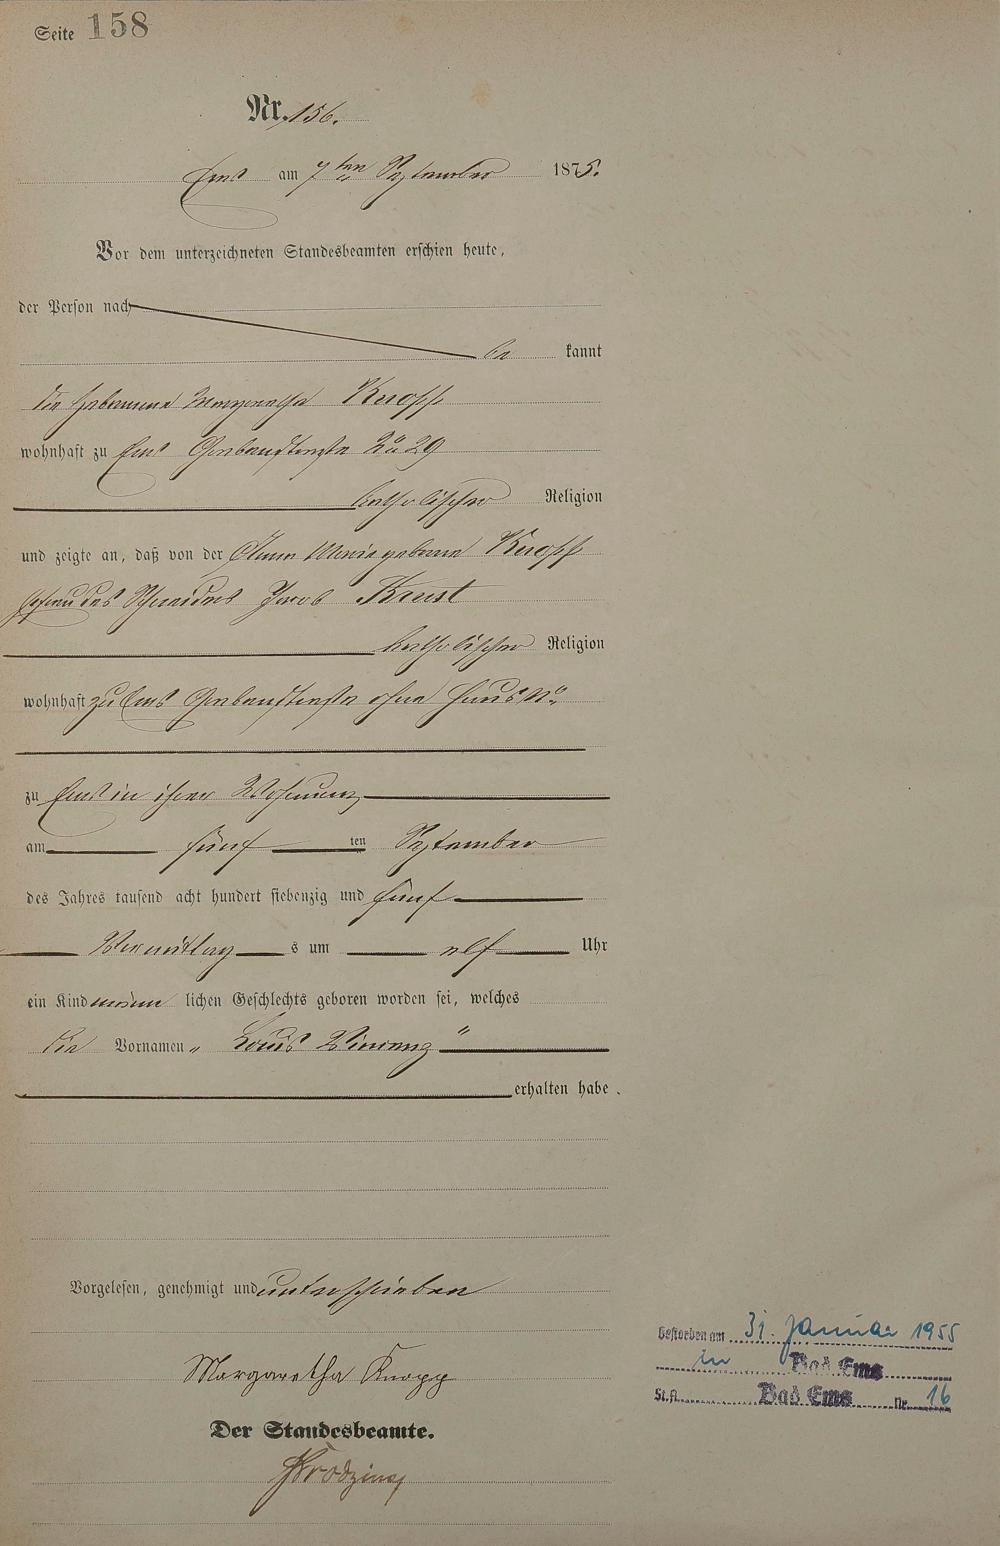 Seite 158
Nr. 156.
Ems am 7ten September 1875.
Vor dem unterzeichneten Standesbeamten erschien heute,
der Person nach
be kannt
die Hebamme Margaretha Knopp
wohnhaft zu Ems Grabenstraße No 29
katholischer Religion
und zeigte an, daß von der Anna Maria geborne Knopp
Ehefrau des Schneiders Jacob Krust
katholischer Religion
wohnhaft zu Ems Grabenstraße ohne Haus No
zu Ems in ihrer Wohnung
am fünf ten September
des Jahres tausend acht hundert siebenzig und fünf
Vormittag s um elf Uhr
ein Kind männ lichen Geschlechts geboren worden sei, welches
die Vornamen „Louis "
erhalten habe.
Vorgelesen, genehmigt und unterschrieben
Margaretha Knopp
Der Standesbeamte.
Gestorben am 31. Januar 1955
in Bad Ems
St.A. Bad Ems Nr. 16